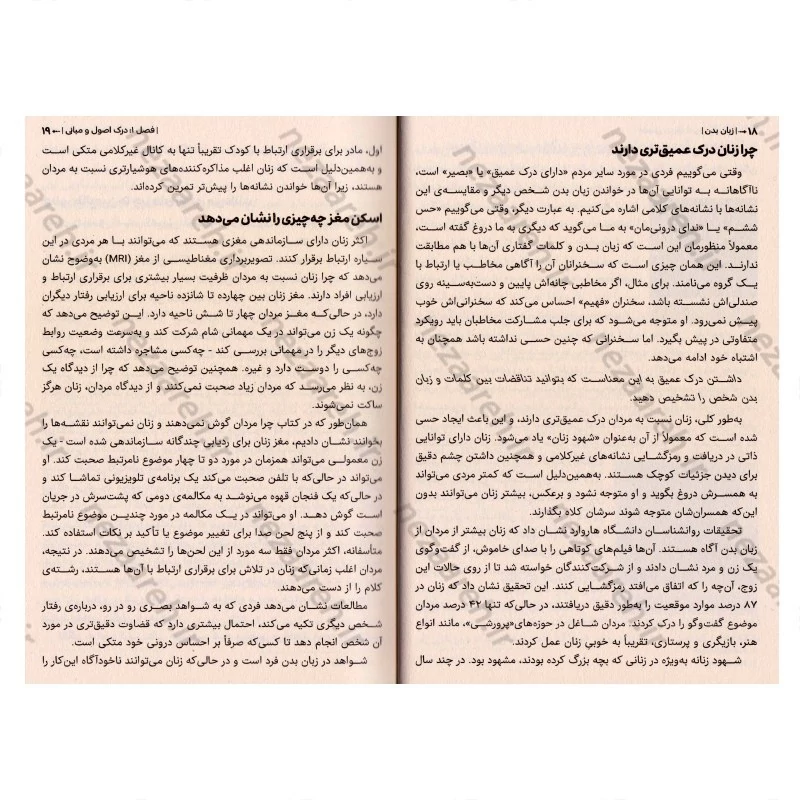 ۱۸ ⟶ | زبان بدن |
چرا زنان درک عمیق‌تری دارند
وقتی می‌گوییم فردی در مورد سایر مردم «دارای درک عمیق» یا «بصیر» است،
ناآگاهانه به توانایی آن‌ها در خواندن زبان بدن شخص دیگر و مقایسه‌ی این
نشانه‌ها با نشانه‌های کلامی اشاره می‌کنیم. به عبارت دیگر، وقتی می‌گوییم «حس
ششم» یا «ندای درونی‌مان» به ما می‌گوید که دیگری به ما دروغ گفته است،
معمولاً منظورمان این است که زبان بدن و کلمات گفتاری آن‌ها با هم مطابقت
ندارند. این همان چیزی است که سخنرانان آن را آگاهی مخاطب یا ارتباط با
یک گروه می‌نامند. برای مثال، اگر مخاطبی چانه‌اش پایین و دست‌به‌سینه روی
صندلی‌اش نشسته باشد، سخنران «فهیم» احساس می‌کند که سخنرانی‌اش خوب
پیش نمی‌رود. او متوجه می‌شود که برای جلب مشارکت مخاطبان باید رویکرد
متفاوتی در پیش بگیرد. اما سخنرانی که چنین حسی نداشته باشد همچنان به
اشتباه خود ادامه می‌دهد.
داشتن درک عمیق به این معناست که بتوانید تناقضات بین کلمات و زبان
بدن شخص را تشخیص دهید.
به‌طور کلی، زنان نسبت به مردان درک عمیق‌تری دارند، و این باعث ایجاد حسی
شده است که معمولاً از آن به‌عنوان «شهود زنان» یاد می‌شود. زنان دارای توانایی
ذاتی در دریافت و رمزگشایی نشانه‌های غیرکلامی و همچنین داشتن چشم دقیق
برای دیدن جزئیات کوچک هستند. به‌همین‌دلیل است که کمتر مردی می‌تواند
به همسرش دروغ بگوید و او متوجه نشود و برعکس، بیشتر زنان می‌توانند بدون
این‌که همسران‌شان متوجه شوند سرشان کلاه بگذارند.
تحقیقات روانشناسان دانشگاه هاروارد نشان داد که زنان بیشتر از مردان از
زبان بدن آگاه هستند. آن‌ها فیلم‌های کوتاهی را با صدای خاموش، از گفت‌وگوی
یک زن و مرد نشان دادند و از شرکت‌کنندگان خواسته شد تا از روی حالات این
زوج، آن‌چه را که اتفاق می‌افتد رمزگشایی کنند. این تحقیق نشان داد که زنان در
۸۷ درصد موارد موقعیت را به‌طور دقیق دریافتند، در حالی‌که تنها ۴۲ درصد مردان
موضوع گفت‌وگو را درک کردند. مردان شاغل در حوزه‌های «پرورشی»، مانند انواع
هنر، بازیگری و پرستاری، تقریباً به خوبیِ زنان عمل کردند.
شهود زنانه به‌ویژه در زنانی که بچه بزرگ کرده بودند، مشهود بود. در چند سال
| فصل ۱: درک اصول و مبانی | ⟵ ۱۹
اول، مادر برای برقراری ارتباط با کودک تقریباً تنها به کانال غیرکلامی متکی است
و به‌همین‌دلیل است که زنان اغلب مذاکره‌کننده‌های هوشیارتری نسبت به مردان
هستند، زیرا آن‌ها خواندن نشانه‌ها را پیش‌تر تمرین کرده‌اند.
اسکن مغز چه‌چیزی را نشان می‌دهد
اکثر زنان دارای سازماندهی مغزی هستند که می‌توانند با هر مردی در این
سیاره ارتباط برقرار کنند. تصویربرداری مغناطیسی از مغز (MRI) به‌وضوح نشان
می‌دهد که چرا زنان نسبت به مردان ظرفیت بسیار بیشتری برای برقراری ارتباط و
ارزیابی افراد دارند. مغز زنان بین چهارده تا شانزده ناحیه برای ارزیابی رفتار دیگران
دارد، در حالی‌که مغز مردان چهار تا شش ناحیه دارد. این توضیح می‌دهد که
چگونه یک زن می‌تواند در یک مهمانی شام شرکت کند و به‌سرعت وضعیت روابط
زوج‌های دیگر را در مهمانی بررسی کند - چه‌کسی مشاجره داشته است، چه‌کسی
چه‌کسی را دوست دارد و غیره. همچنین توضیح می‌دهد که چرا از دیدگاه یک
زن، به نظر می‌رسد که مردان زیاد صحبت نمی‌کنند و از دیدگاه مردان، زنان هرگز
ساکت نمی‌شوند.
همان‌طور که در کتاب چرا مردان گوش نمی‌دهند و زنان نمی‌توانند نقشه‌ها را
بخوانند نشان دادیم، مغز زنان برای ردیابی چندگانه سازماندهی شده است - یک
زن معمولی می‌تواند همزمان در مورد دو تا چهار موضوع نامرتبط صحبت کند. او
می‌تواند در حالی‌که با تلفن صحبت می‌کند یک برنامه‌ی تلویزیونی تماشا کند و
در حالی‌که یک فنجان قهوه می‌نوشد به مکالمه‌ی دومی که پشت‌سرش در جریان
است گوش دهد. او می‌تواند در یک مکالمه در مورد چندین موضوع نامرتبط
صحبت کند و از پنج لحن صدا برای تغییر موضوع یا تأکید بر نکات استفاده کند.
متأسفانه، اکثر مردان فقط سه مورد از این لحن‌ها را تشخیص می‌دهند. در نتیجه،
مردان اغلب زمانی‌که زنان در تلاش برای برقراری ارتباط با آن‌ها هستند، رشته‌ی
کلام را از دست می‌دهند.
مطالعات نشان می‌دهد فردی که به شواهد بصری رو در رو، درباره‌ی رفتار
شخص دیگری تکیه می‌کند، احتمال بیشتری دارد که قضاوت دقیق‌تری در مورد
آن شخص انجام دهد تا کسی‌که صرفاً بر احساس درونی خود متکی است.
شواهد در زبان بدن فرد است و در حالی‌که زنان می‌توانند ناخودآگاه این‌کار را
nezarehir.ir